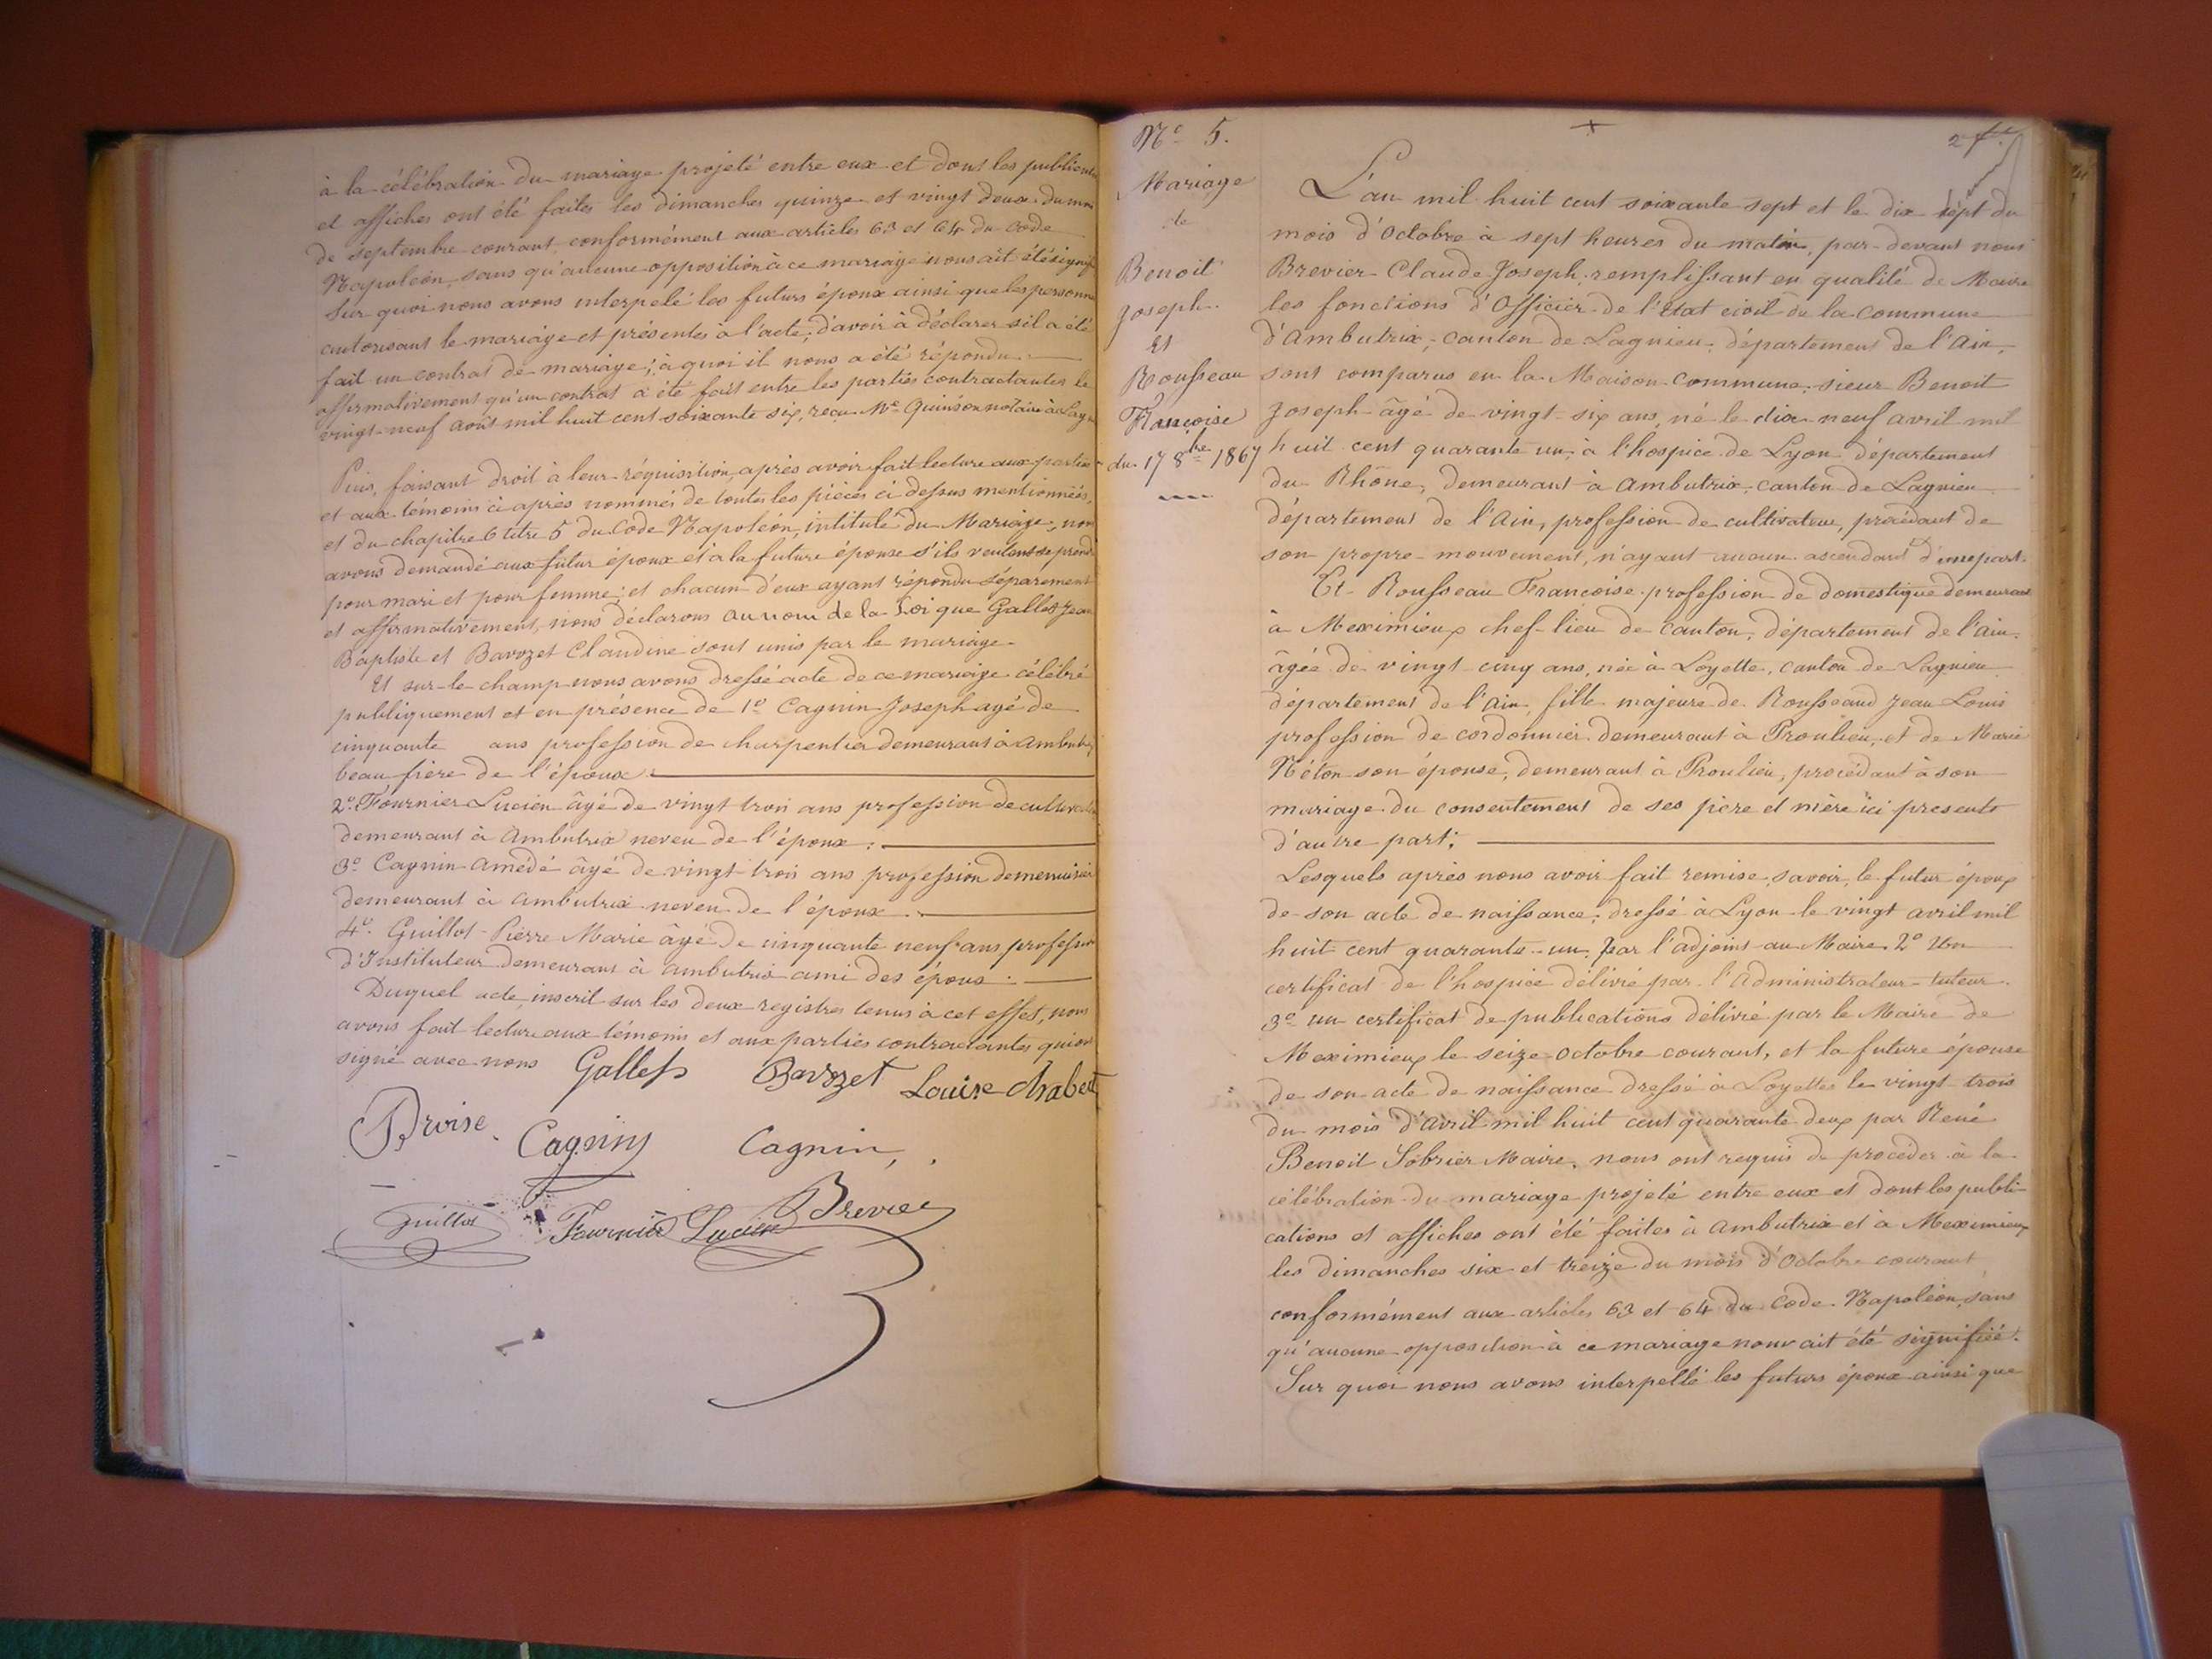 à la célébration du mariage projeté entre eux et dont les publications
et affiches ont été faites les dimanches quinze et vingt deux du mois
de septembre courant conformément aux articles 63 et 64 du Code
Napoléon, sans qu'aucune opposition à ce mariage nous ait été signifiée
Sur quoi nous avons interpelé les futurs époux ainsi que les personnes
autorisant le mariage et présentes à l'acte, d'avoir à déclarer s'il a été
fait un contrat de mariage; à quoi il nous a été répondu
affirmativement qu'un contrat a été fait entre les parties contractantes le
vingt-neuf août mil huit cent soixante six, reçu Me Quinson notaire à
Puis, faisant droit à leur réquisition, après avoir fait lecture aux parties
et aux témoins ci après nommés de toutes les pièces ci dessus mentionnées,
et du chapitre 6 titre 5 du Code Napoléon, intitulé du Mariage, nous
avons demandé aux futur époux et à la future épouse s'ils veulent se prendre
pour mari et pour femme; et chacun d'eux ayant répondu séparement
et affirmativement, nous déclarons au nom de la Loi que Gallet Jean
Baptiste et Barozet Claudine sont unis par le mariage.
Et sur-le-champ nous avons dressé acte de ce mariage célébré
publiquement et en présence de 1o Cagnin Joseph agé de
cinquante ans profession de charpentier demeurant à Ambutrix,
beau frère de l'époux :
2o. Fournier Lucien âgé de vingt trois ans profession de cultivateur
demeurant à Ambutrix neveu de l'époux :
3o. Cagnin Amédé âgé de vingt-trois ans profession de menuisier
demeurant à Ambutrix neveu de l'époux
4o. Guillot Pierre Marie âgé de cinquante neuf ans profession
d'Instituteur demeurant à Ambutrix ami des époux :
Duquel acte, inscrit sur les deux registres tenus à cet effet, nous
avons fait lecture aux témoins et aux parties contractantes qui ont
signé avec nous Gallet Barozet Louise Chabert
Broise Cagnin Cagnin
Guillot Fournier Lucien Brevier
No 5.
Mariage
de
Benoit
Joseph
et
Rousseau
Françoise
du 17 8bre 1867
2 f.
L'an mil huit cent soixante sept et le dix sept du
mois d'Octobre à sept heures du matin, par-devant nous
Brevier Claude Joseph, remplissant en qualité de Maire
les fonctions d'Officier de l'état civil de la commune
d'Ambutrix, canton de Lagnieu, département de l'Ain,
sont comparus en la Maison commune, sieur Benoit
Joseph âgé de vingt-six ans, né le dix neuf avril mil
huit cent quarante un, à l'hospice de Lyon département
du Rhône, demeurant à Ambutrix, canton de Lagnieu
département de l'Ain, profession de cultivateur, procédant de
son propre mouvement, n'ayant aucun ascendant d'une part.
Et Rousseau Françoise profession de domestique demeurant
à Meximieux chef-lieu de canton, département de l'Ain.
âgée de vingt cinq ans, née à Loyette, canton de Lagnieu
département de l'Ain, fille majeure de Rousseaud Jean Louis
profession de cordonnier demeurant à Proulieu, et de Marie
Néton son épouse, demeurant à Proulieu, procédant à son
mariage du consentement de ses père et mère ici presents
d'autre part;
Lesquels après nous avoir fait remise, savoir, le futur époux
de son acte de naissance, dressé à Lyon le vingt avril mil
huit cent quarante-un, par l'adjoint au Maire. 2o Un
certificat de l'hospice délivré par l'Administrateur-tuteur.
3o un certificat de publications délivré par le Maire de
Meximieux le seize Octobre courant, et la future épouse
de son acte de naissance dressé à Loyettes le vingt-trois
du mois d'avril mil huit cent quarante deux par René
Benoit Sobrier Maire, nous ont requis de procéder à la
célébration du mariage projeté entre eux et dont les publi-
cations et affiches ont été faites à Ambutrix et à Meximieux
les dimanches six et treize du mois d'Octobre courant
conformément aux articles 63 et 64 du Code Napoléon, sans
qu'aucune opposition à ce mariage nous ait été signifiée.
Sur quoi nous avons interpellé les futurs époux ainsi que